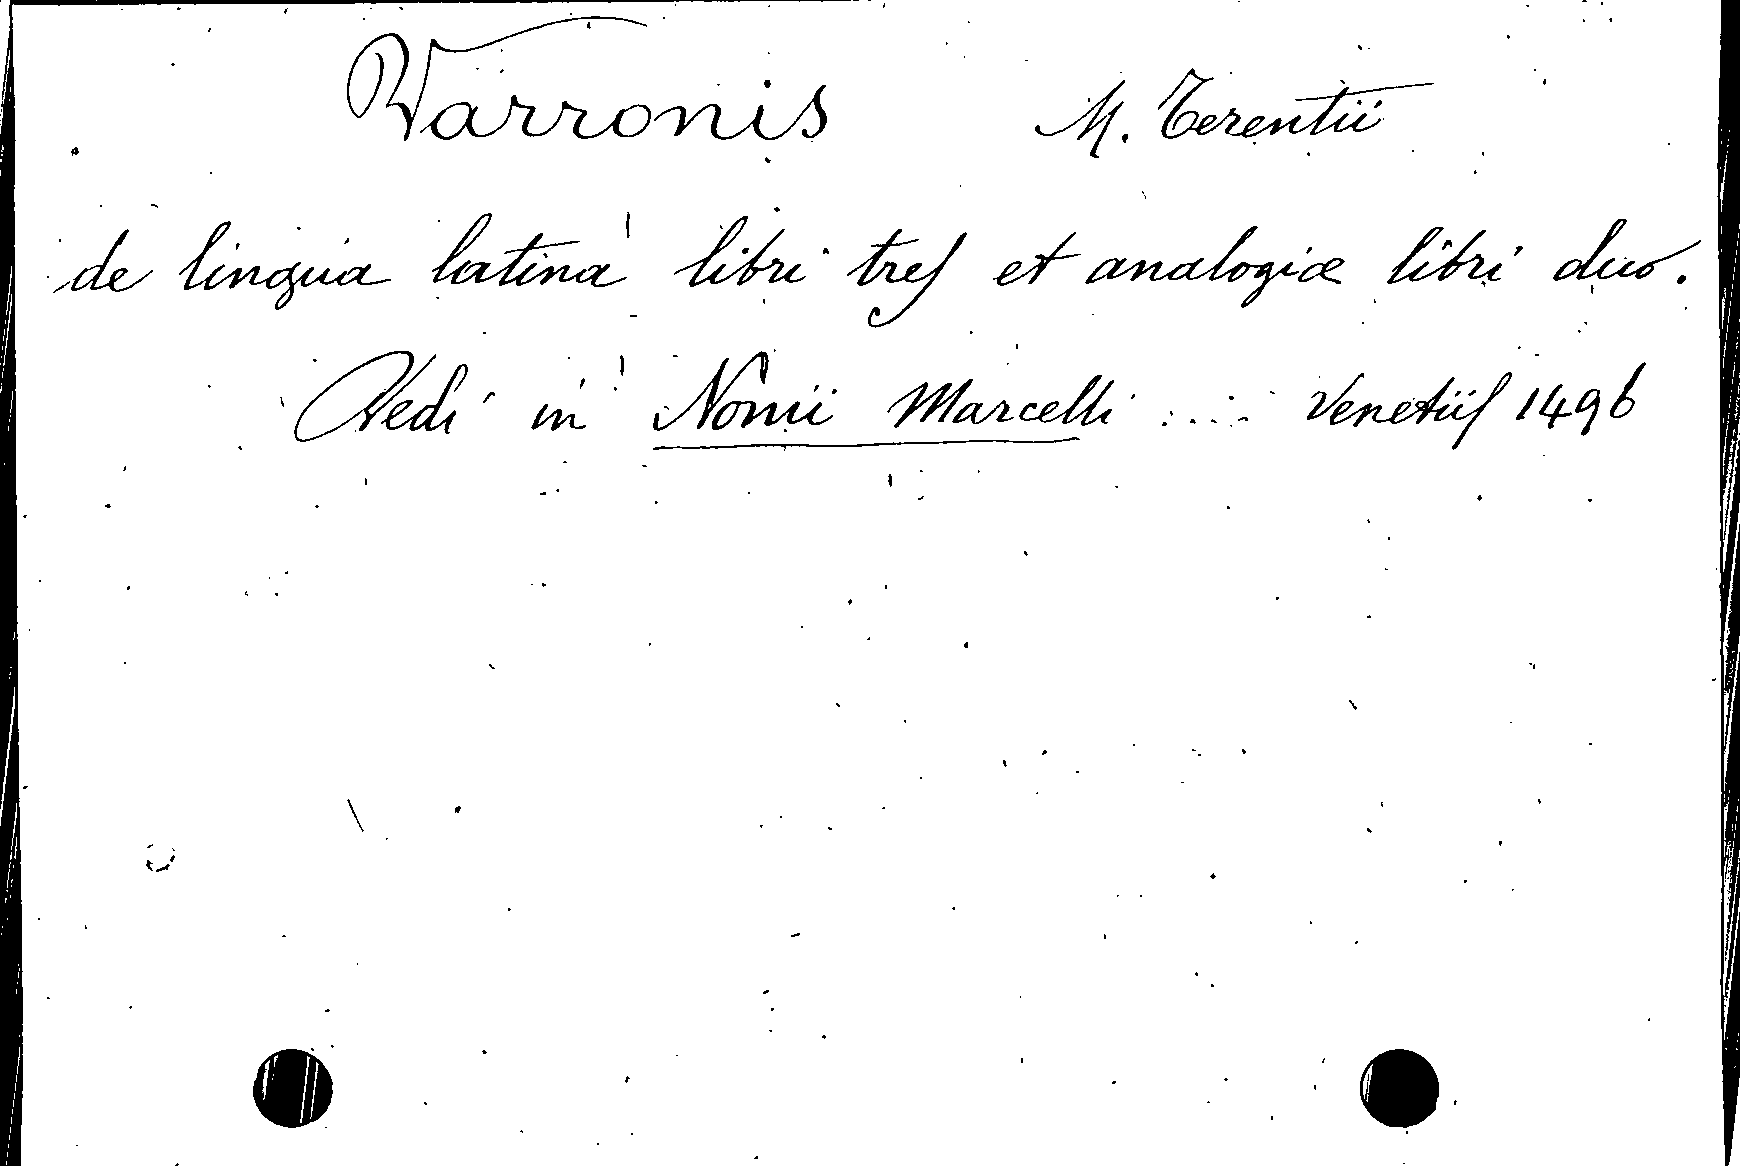 Varronis M. Terentii
de lingua latina libri tres et analogiæ libri duo.
Vedi in Nonii Marcelli .... Venetiis 1496